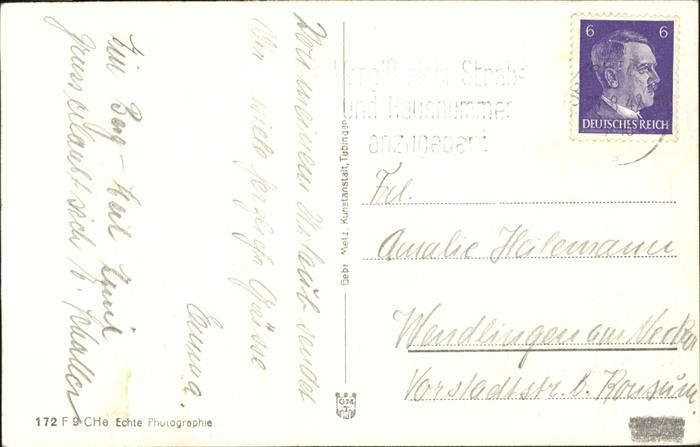 Von meinem Urlaub sendet
Dir viele herzliche Grüsse
Emma.
Ein Berg-Heil Emil
Gruss erlaubt sich
172 F 9 CHe Echte Photographie
Gebr. Metz, Kunstanstalt, Tübingen
Vergiß nicht Straße
und Hausnummer
anzugeben!
6 6
DEUTSCHES REICH
Frl.
Amalie Heilemann
Wendlingen am Neckar
Vorstadtstr. b. Konsum